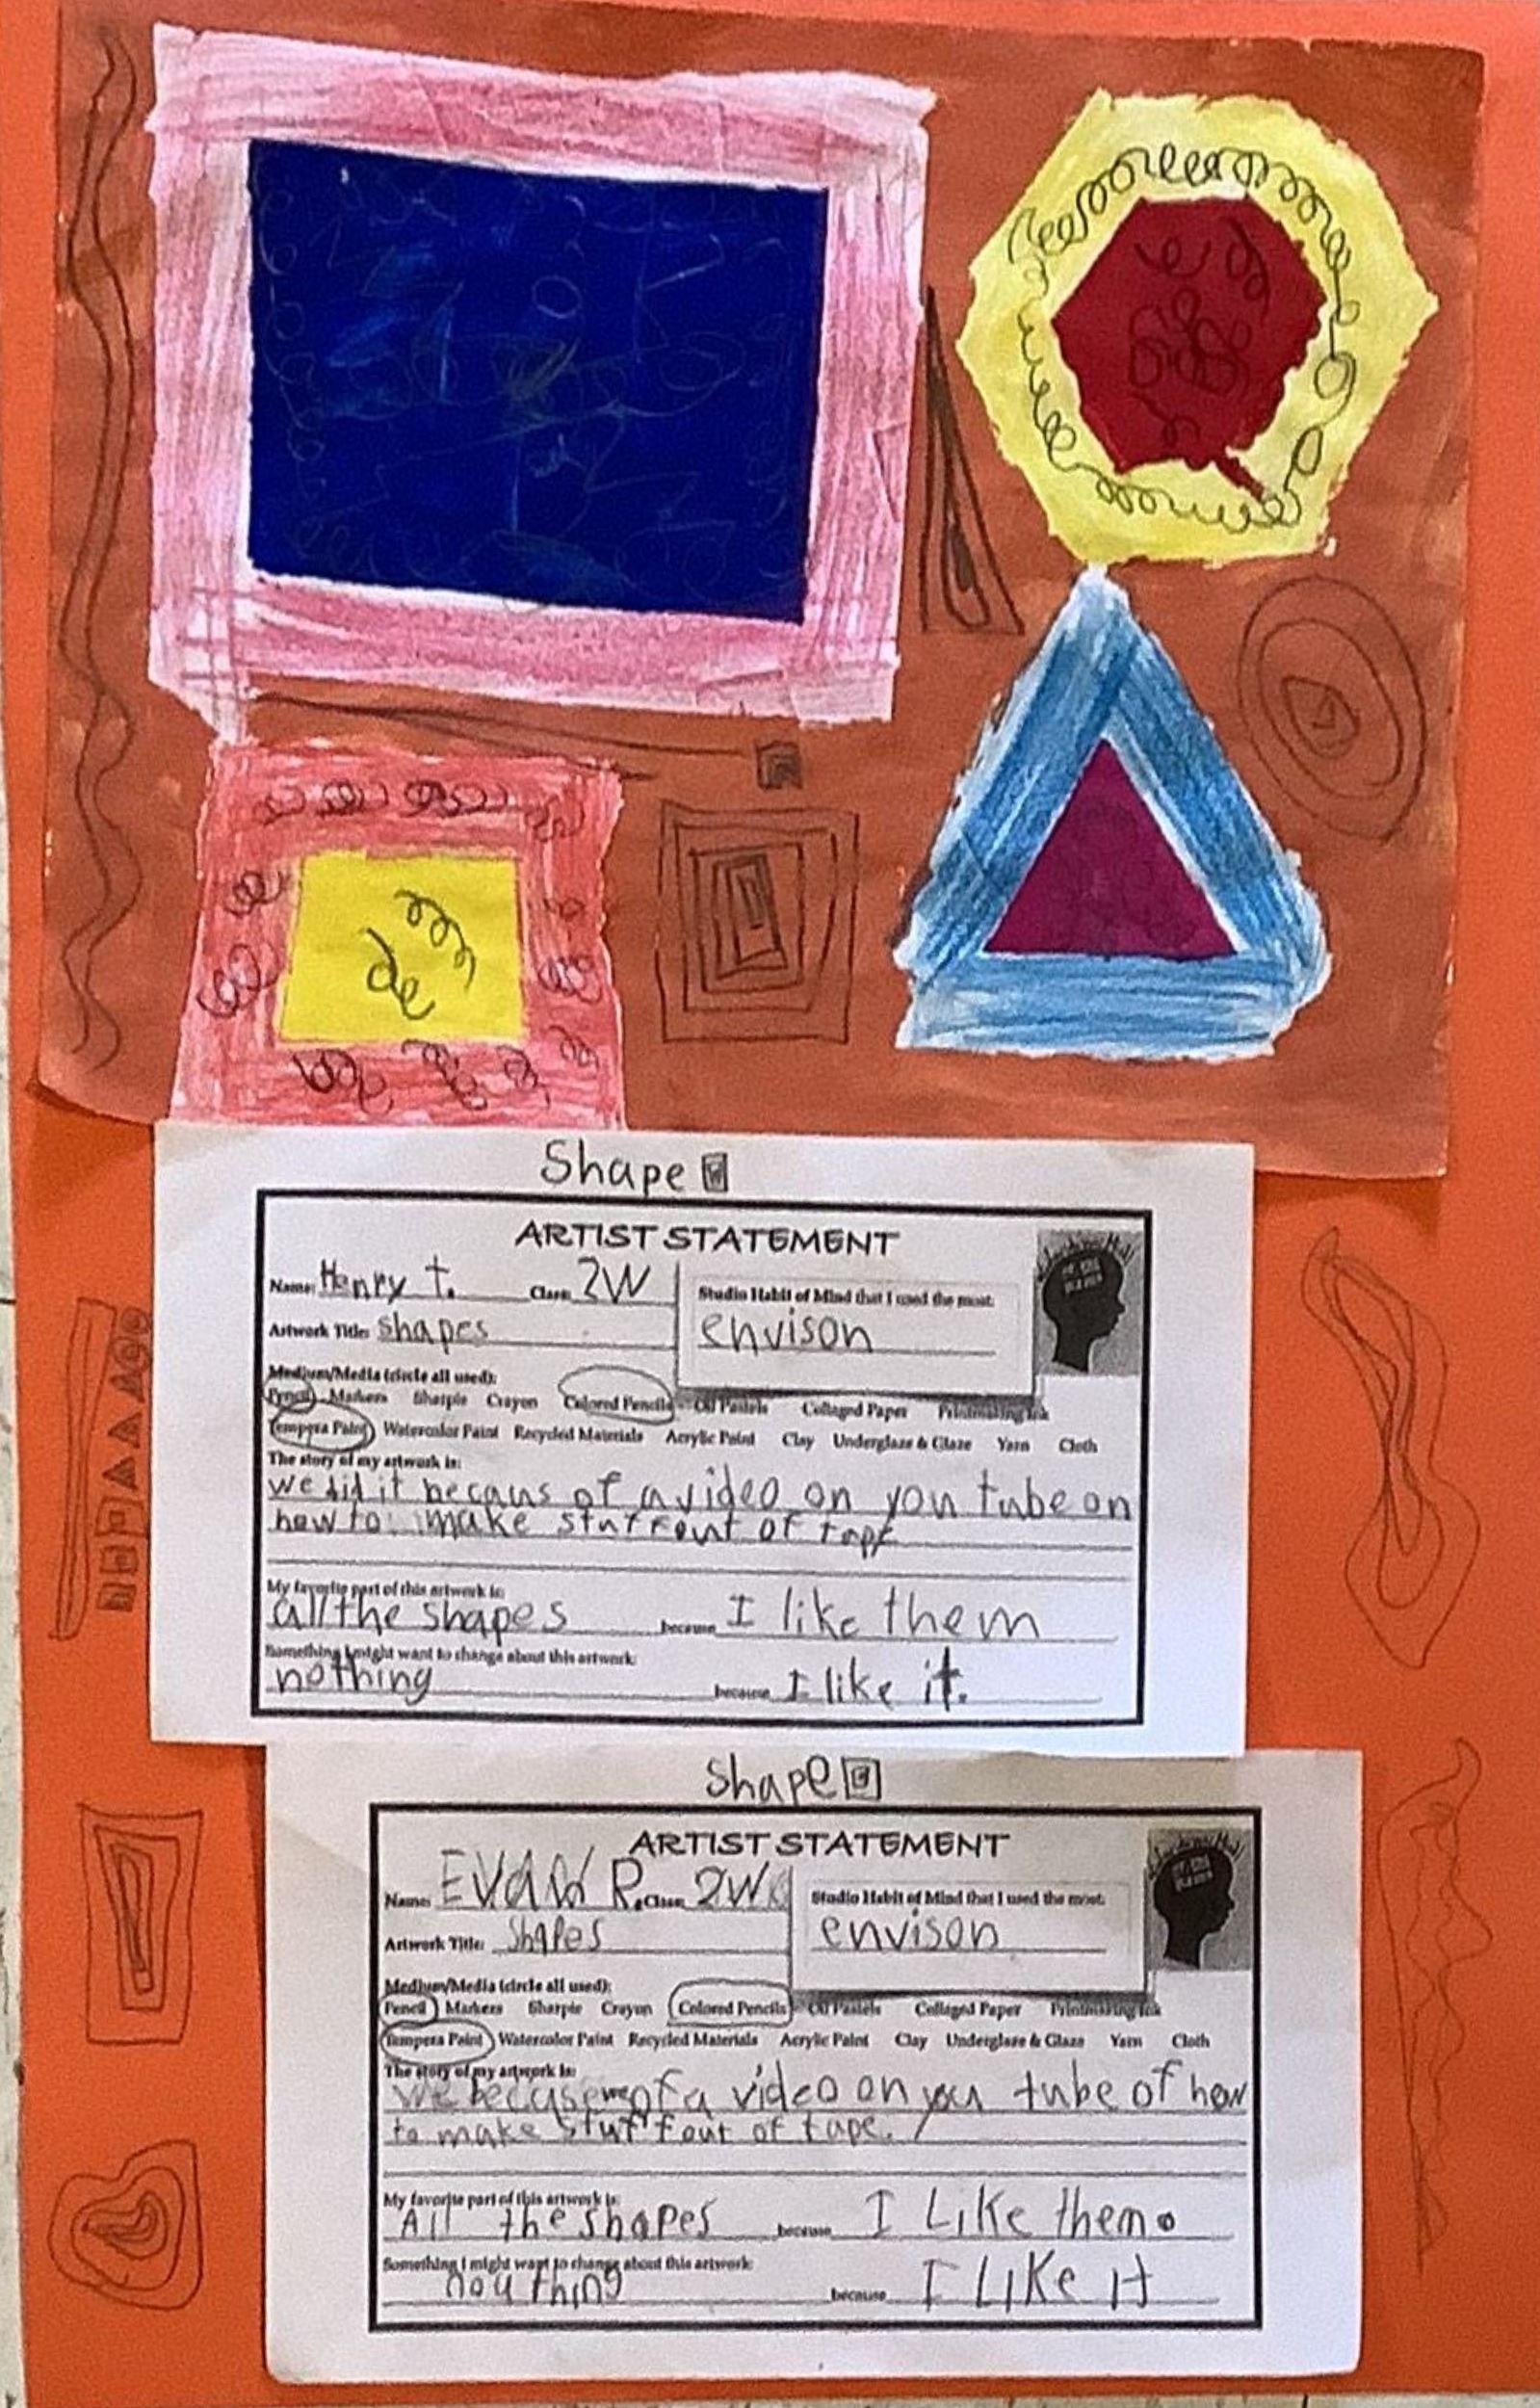 Shape
ARTIST STATEMENT
Name: Henry t. Class: 2W
Studio Habit of Mind that I used the most:
envison
Artwork Title: shapes
Medium/Media (circle all used):
Pencil Markers Sharpie Crayon Colored Pencils Oil Pastels Collaged Paper Printmaking Ink
Tempera Paint Watercolor Paint Recycled Materials Acrylic Paint Clay Underglaze & Glaze Yarn Cloth
The story of my artwork is:
we did it becaus of a video on you tube on
how to make stuff out of tape
My favorite part of this artwork is:
all the shapes because I like them
Something I might want to change about this artwork:
nothing because I like it.
Shape
ARTIST STATEMENT
Name: EVAN R. Class: 2W
Studio Habit of Mind that I used the most:
envison
Artwork Title: ShaPes
Medium/Media (circle all used):
Pencil Markers Sharpie Crayon Colored Pencils Oil Pastels Collaged Paper Printmaking Ink
Tempera Paint Watercolor Paint Recycled Materials Acrylic Paint Clay Underglaze & Glaze Yarn Cloth
The story of my artwork is:
We of a video on you tube of how
to make stuff out of tape.
My favorite part of this artwork is:
All the shapes because I Like them.
Something I might want to change about this artwork:
nouthing because I LIKe it